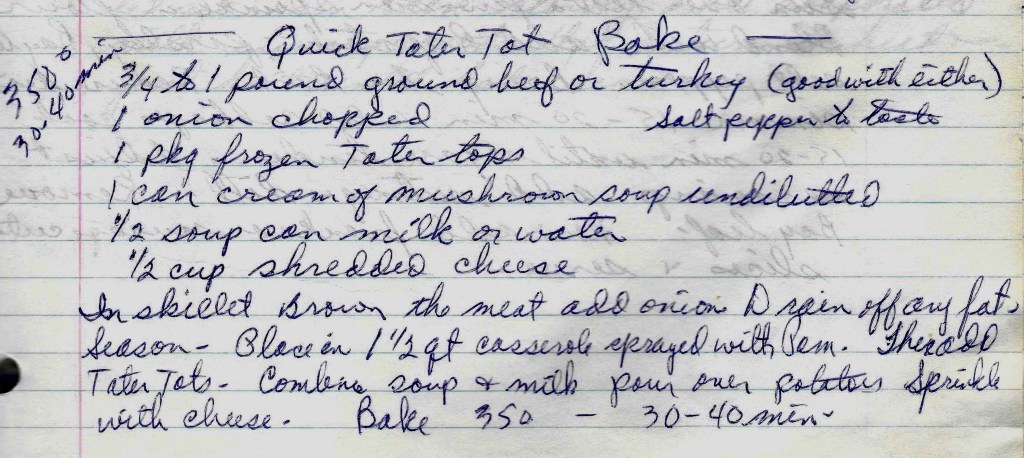 Quick Tater Tot Bake
350°
30-40 min
3/4 to 1 pound ground beef or turkey (good with either)
1 onion chopped salt pepper to taste
1 pkg frozen Tater tops
1 can cream of mushroom soup undilutted
1/2 soup can milk or water
1/2 cup shredded cheese
In skillet Brown the meat add onion Drain off any fat.
Season - Place in 1 1/2 qt casserole sprayed with Pam. Then add
Tater Tots - Combine soup & milk pour over potatoes Sprinkle
with cheese. Bake 350 - 30-40 min-